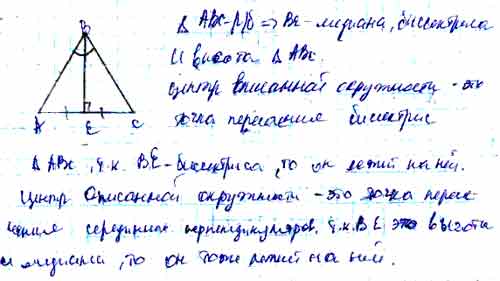 В
А Е С
Δ АВС - р/б => ВЕ - медиана, биссектриса
и высота Δ АВС.
Центр вписанной окружности - это
точка пересечения биссектрис
Δ АВС, т.к. ВЕ - биссектриса, то он лежит на ней.
Центр описанной окружности - это точка пересе-
чения серединных перпендикуляров, т.к. ВЕ это высота
и медиана, то он тоже лежит на ней.